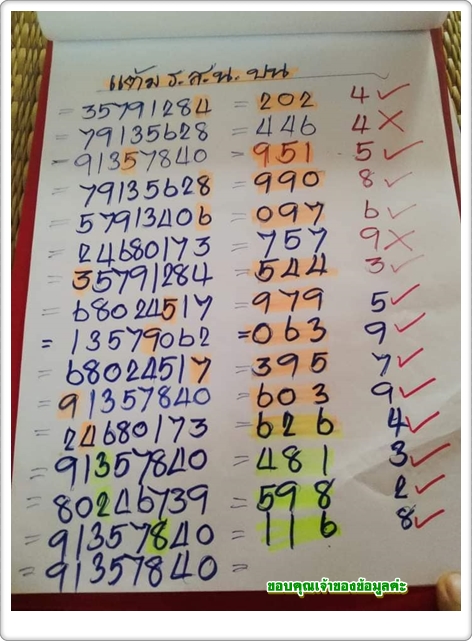 แต้ม ร.ส.น. บน
= 35791284 = 202 4 ✓
= 79135628 = 446 4 ✗
= 91357840 = 951 5 ✓
= 79135628 = 990 8 ✓
= 57913406 = 097 6 ✓
= 24680173 = 757 9 ✗
= 35791284 = 544 3 ✓
= 68024517 = 979 5 ✓
= 13579062 = 063 9 ✓
= 68024517 = 395 7 ✓
= 91357840 = 603 9 ✓
= 24680173 = 626 4 ✓
= 91357840 = 481 3 ✓
= 80246739 = 598 2 ✓
= 91357840 = 116 8 ✓
= 91357840 =
ขอบคุณเจ้าของข้อมูลค่ะ